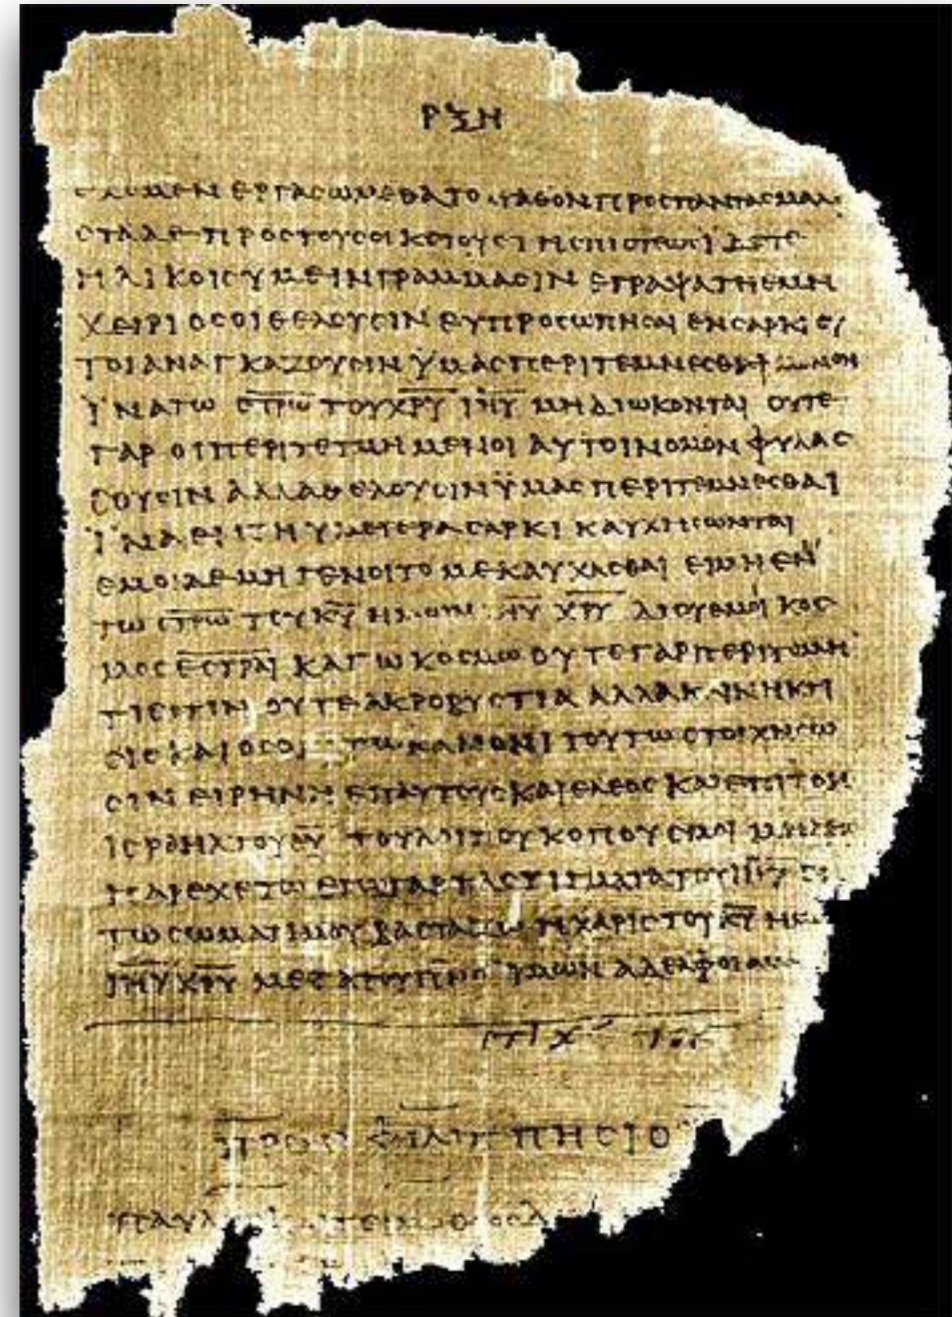 ΡΞΗ
ΕΡΓΑCΩΜΕΘΑ ΤΟ ΑΓΑΘΟΝ ΠΡΟC ΠΑΝΤΑC ΜΑΛΙ
CΤΑ ΔΕ ΠΡΟC ΤΟΥC ΟΙΚΕΙΟΥC ΤΗC ΠΙCΤΕΩC ΙΔΕΤΕ
ΗΛΙΚΟΙC ΥΜΕΙΝ ΓΡΑΜΜΑCΙΝ ΕΓΡΑΨΑ ΤΗ ΕΜΗ
ΧΕΙΡΙ ΟCΟΙ ΘΕΛΟΥCΙΝ ΕΥΠΡΟCΩΠΗCΑΙ ΕΝ CΑΡΚΙ ΟΥ
ΤΟΙ ΑΝΑΓΚΑΖΟΥCΙΝ ΫΜΑC ΠΕΡΙΤΕΜΝΕCΘΑΙ ΜΟΝΟΝ
ΪΝΑ ΤΩ C̅Τ̅Ρ̅Ω̅ ΤΟΥ Χ̅Ρ̅Υ̅ Ι̅Η̅Υ̅ ΜΗ ΔΙΩΚΟΝΤΑΙ ΟΥΤΕ
ΓΑΡ ΟΙ ΠΕΡΙΤΕΤΜΗΜΕΝΟΙ ΑΥΤΟΙ ΝΟΜΟΝ ΦΥΛΑC
CΟΥCΙΝ ΑΛΛΑ ΘΕΛΟΥCΙΝ ΫΜΑC ΠΕΡΙΤΕΜΝΕCΘΑΙ
ΪΝΑ ΕΝ ΤΗ ΥΜΕΤΕΡΑ CΑΡΚΙ ΚΑΥΧΗCΩΝΤΑΙ
ΕΜΟΙ ΔΕ ΜΗ ΓΕΝΟΙΤΟ ΜΕ ΚΑΥΧΑCΘΑΙ ΕΙ ΜΗ ΕΝ
ΤΩ C̅Τ̅Ρ̅Ω̅ ΤΟΥ Κ̅Υ̅ ΗΜΩΝ Ι̅Η̅Υ̅ Χ̅Ρ̅Υ̅ ΔΙ ΟΥ ΕΜΟΙ ΚΟC
ΜΟC Ε̅C̅Τ̅Ρ̅Α̅Ι̅ ΚΑΓΩ ΚΟCΜΩ ΟΥΤΕ ΓΑΡ ΠΕΡΙΤΟΜΗ
ΤΙ ΕCΤΙΝ ΟΥΤΕ ΑΚΡΟΒΥCΤΙΑ ΑΛΛΑ ΚΑΙΝΗ ΚΤΙ
CΙC ΚΑΙ ΟCΟΙ ΤΩ ΚΑΝΟΝΙ ΤΟΥΤΩ CΤΟΙΧΗCΩ
CΙΝ ΕΙΡΗΝΗ ΕΠ ΑΥΤΟΥC ΚΑΙ ΕΛΕΟC ΚΑΙ ΕΠΙ ΤΟΝ
ΙCΡΑΗΛ ΤΟΥ Θ̅Υ̅ ΤΟΥ ΛΟΙΠΟΥ ΚΟΠΟΥC ΜΟΙ ΜΗΔΕΙC
ΠΑΡΕΧΕΤΩ ΕΓΩ ΓΑΡ ΤΑ CΤΙΓΜΑΤΑ ΤΟΥ Ι̅Η̅Υ̅ ΕΝ
ΤΩ CΩΜΑΤΙ ΜΟΥ ΒΑCΤΑΖΩ Η ΧΑΡΙC ΤΟΥ Κ̅Υ̅ ΗΜ
Ι̅Η̅Υ̅ Χ̅Ρ̅Υ̅ ΜΕΤΑ ΤΟΥ Π̅Ν̅C̅ ΫΜΩΝ ΑΔΕΛΦΟΙ ΑΜ
CΤΙΧ
ΠΡΟC ΦΙΛΙΠΠΗCΙΟΥ